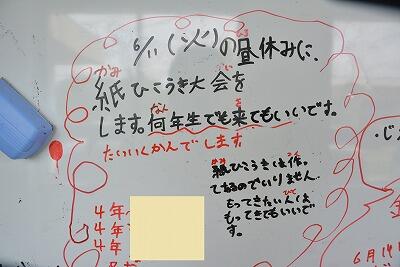 6/11(火)の昼休みに、
紙ひこうき大会を
します。何年生でも来てもいいです。
たいいくかんでします
紙ひこうきは作っ
てあるのでいりません。
もってきたい人は、
もってきてもいいで
す。
4年
4年
4年